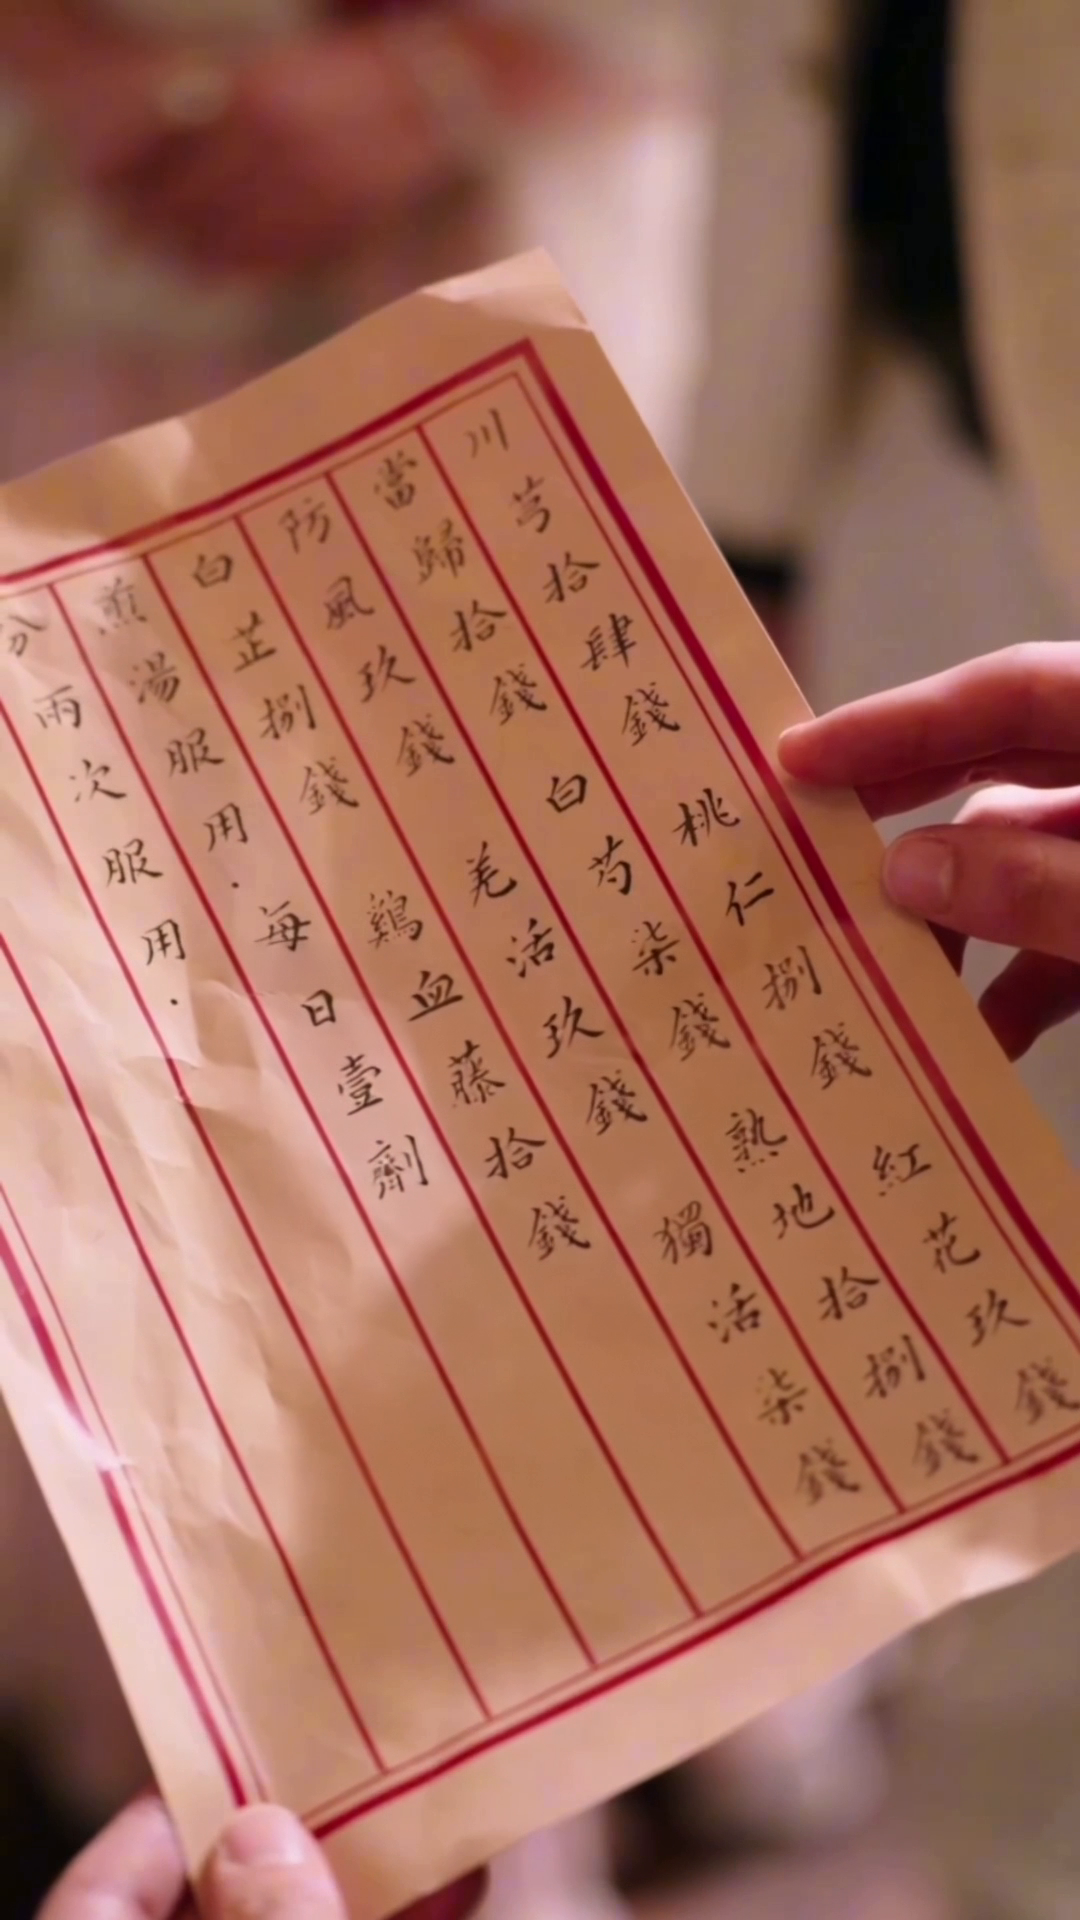 川芎拾肆錢 桃仁捌錢 紅花玖錢
當歸拾錢 白芍柒錢 熟地拾捌錢
防風玖錢 羌活玖錢 獨活柒錢
白芷捌錢 鷄血藤拾錢
煎湯服用.每日壹劑
分兩次服用.